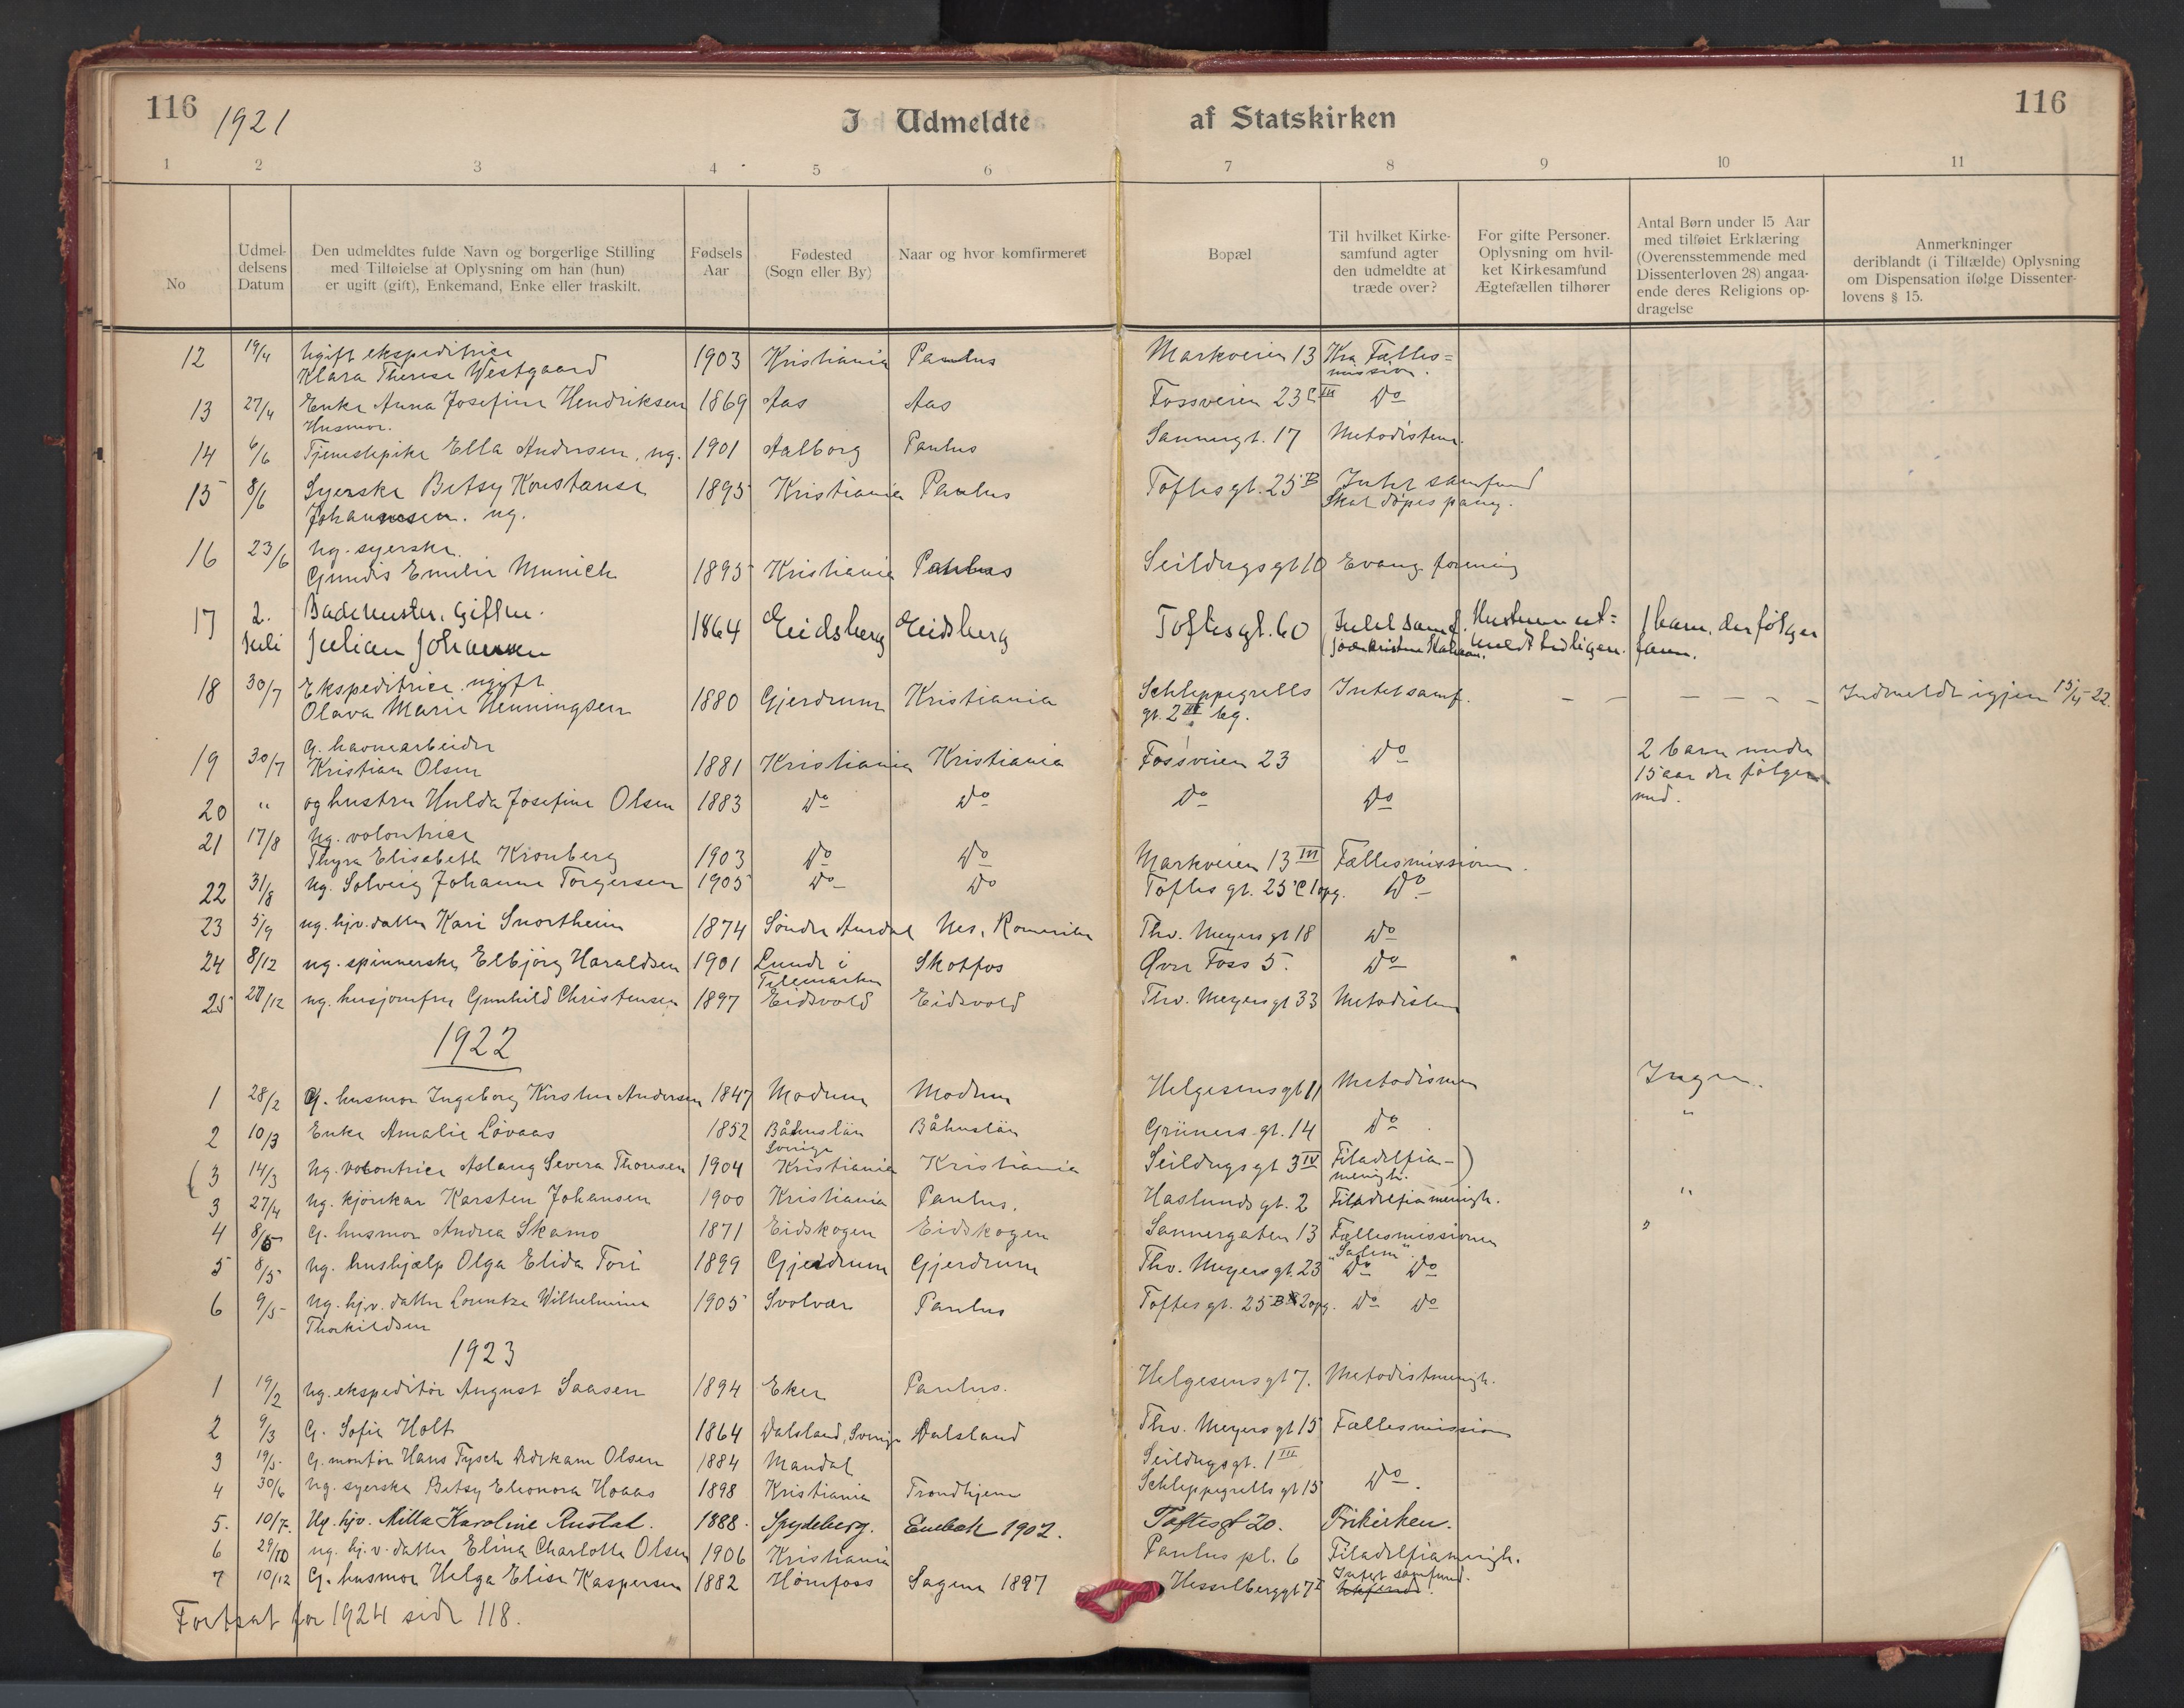 116 1921 I Udmeldte af Statskirken 116
1 2 3 4 5 6 7 8 9 10 11
No
Udmel-
delsens
Datum
Den udmeldtes fulde Navn og borgerlige Stilling
med Tilføielse af Oplysning om han (hun)
er ugift (gift), Enkemand, Enke eller fraskilt.
Fødsels
Aar
Fødested
(Sogn eller By)
Naar og hvor komfirmeret
Bopæl
Til hvilket Kirke-
samfund agter
den udmeldte at
træde over?
For gifte Personer.
Oplysning om hvil-
ket Kirkesamfund
Ægtefællen tilhører
Antal Børn under 15 Aar
med tilføiet Erklæring
(Overensstemmende med
Dissenterloven 28) angaa-
ende deres Religions op-
dragelse
Anmerkninger
deriblandt (i Tilfælde) Oplysning
om Dispensation ifølge Dissenter-
lovens § 15.
12 19/4 Ugift ekspeditrice
Klara Therese Westgaard 1903 Kristiania Paulus Markveien 13 Kra Fælles=
mission.
13 27/4 Enke Anna Josefine Hendriksen 1869 Aas Aas Fossveien 23 C III Do
Husmor.
14 6/6 Tjenestepike Ella Andersen, ug. 1901 Aalborg Paulus Sannergt. 17 Metodistene.
15 8/6 Syerske Betsy Konstanse 1895 Kristiania Paulus Toftesgt. 25 B Intet samfund
Johannesen. ug. Skal døpes paany.
16 23/6 Ug. syerske.
Gundis Emilie Munich 1895 Kristiania Paulus Seildugsgt 10 Evang. forening
17 2. Juli Bademester, Giftm.
Julian Johansen 1864 Eidsberg Eidsberg Toftesgt. 60 Intet samf. Hustruen ut=
meldt tidligere. 1 barn, der følger
faren.
18 30/7 Ekspeditrice, ugift
Olava Marie Henningsen 1880 Gjerdrum Kristiania Schleppegrells
gt. 2 III bg. Intet samf. – – – – – – Indmeldt igjen 15/4-22.
19 30/7 G. havnearbeider
Kristian Olsen 1881 Kristiania Kristiania Fossveien 23 Do 2 barn under
15 aar der følger
med.
20 " og hustru Hulda Josefine Olsen 1883 Do Do Do Do
21 17/8 Ug. volontrice
Thyra Elisabeth Kronberg 1903 Do Do Markveien 13 III Fællesmissionen.
22 31/8 Ug. Solveig Johanne Torgersen 1905 Do Do Toftes gt. 25 C 1 opg. Do
23 5/9 ug. hjv. datter Kari Snortheim 1874 Søndre Aurdal Nes, Romerike Thv. Meyers gt 18 Do
24 8/12 ug. spinnerske Elbjørg Haraldsen 1901 Lunde i
Telemarken Skotfos Øvre Foss 5. Do
25 28/12 ug. husjomfru Gunhild Christensen 1897 Eidsvold Eidsvold Thv. Meyers gt 33 Metodisten
1922
1 28/2 G. husmor Ingeborg Kirstine Andersen 1847 Modum Modum Helgesens gt 11 Metodismen Ingen.
2 10/3 Enke Amalie Lövaas 1852 Båhuslän
Sverige Båhuslän Grüners gt. 14 Do. "
(3 14/3 Ug. volontrice Aslaug Severa Thoresen 1904 Kristiania Kristiania Seildugs gt 3 IV Filadelfia-
menigh. )
3 27/4 Ug. kjørekar Karsten Johansen 1900 Kristiania Paulus. Haslunds gt. 2 Filadelfiamenigh. "
4 8/5 G. husmor Andrea Skamo 1871 Eidskogen Eidskogen Sannergaten 13 Fællesmissionen
"Salem". "
5 8/5 Ug. hushjælp Olga Elida Tori 1899 Gjerdrum Gjerdrum Thv. Meyers gt. 23 Do Do
6 9/5 Ug. hj.v. datter Lorentze Wilhelmine
Thorkildsen 1905 Svolvær Paulus Toftes gt. 25 B 2 opg. Do Do
1923
1 19/2 Ug. ekspeditør August Saasen 1894 Eker Paulus. Helgesens gt 7. Metodistmenigh.
2 9/3 G. Sofie Holt 1864 Dalsland, Sverige Dalsland Thv. Meyers gt 15 Fællesmission
3 19/5 G. montør Hans Tysch Olsen 1884 Mandal Seildugsgt. 1 III
4 30/6 Ug. syerske Betsy Eleonora Hoaas 1898 Kristiania Trondhjem Schleppegrells gt 15 Do.
5. 10/7. Ug. hjv. Milla Karoline Rustad. 1888. Spydeberg. Enebak 1902. Toftesgt 20. Frikirken.
6 29/10 ug. hj.v. datter Elma Charlotte Olsen 1906 Kristiania Paulus pl. 6 Filadelfiamenigh.
7 10/12 G. husmor Helga Elise Kaspersen 1882 Hønefoss Sagene 1897 Hesselberggt 7 I Intet samfund.
Fortsat for 1924 side 118.